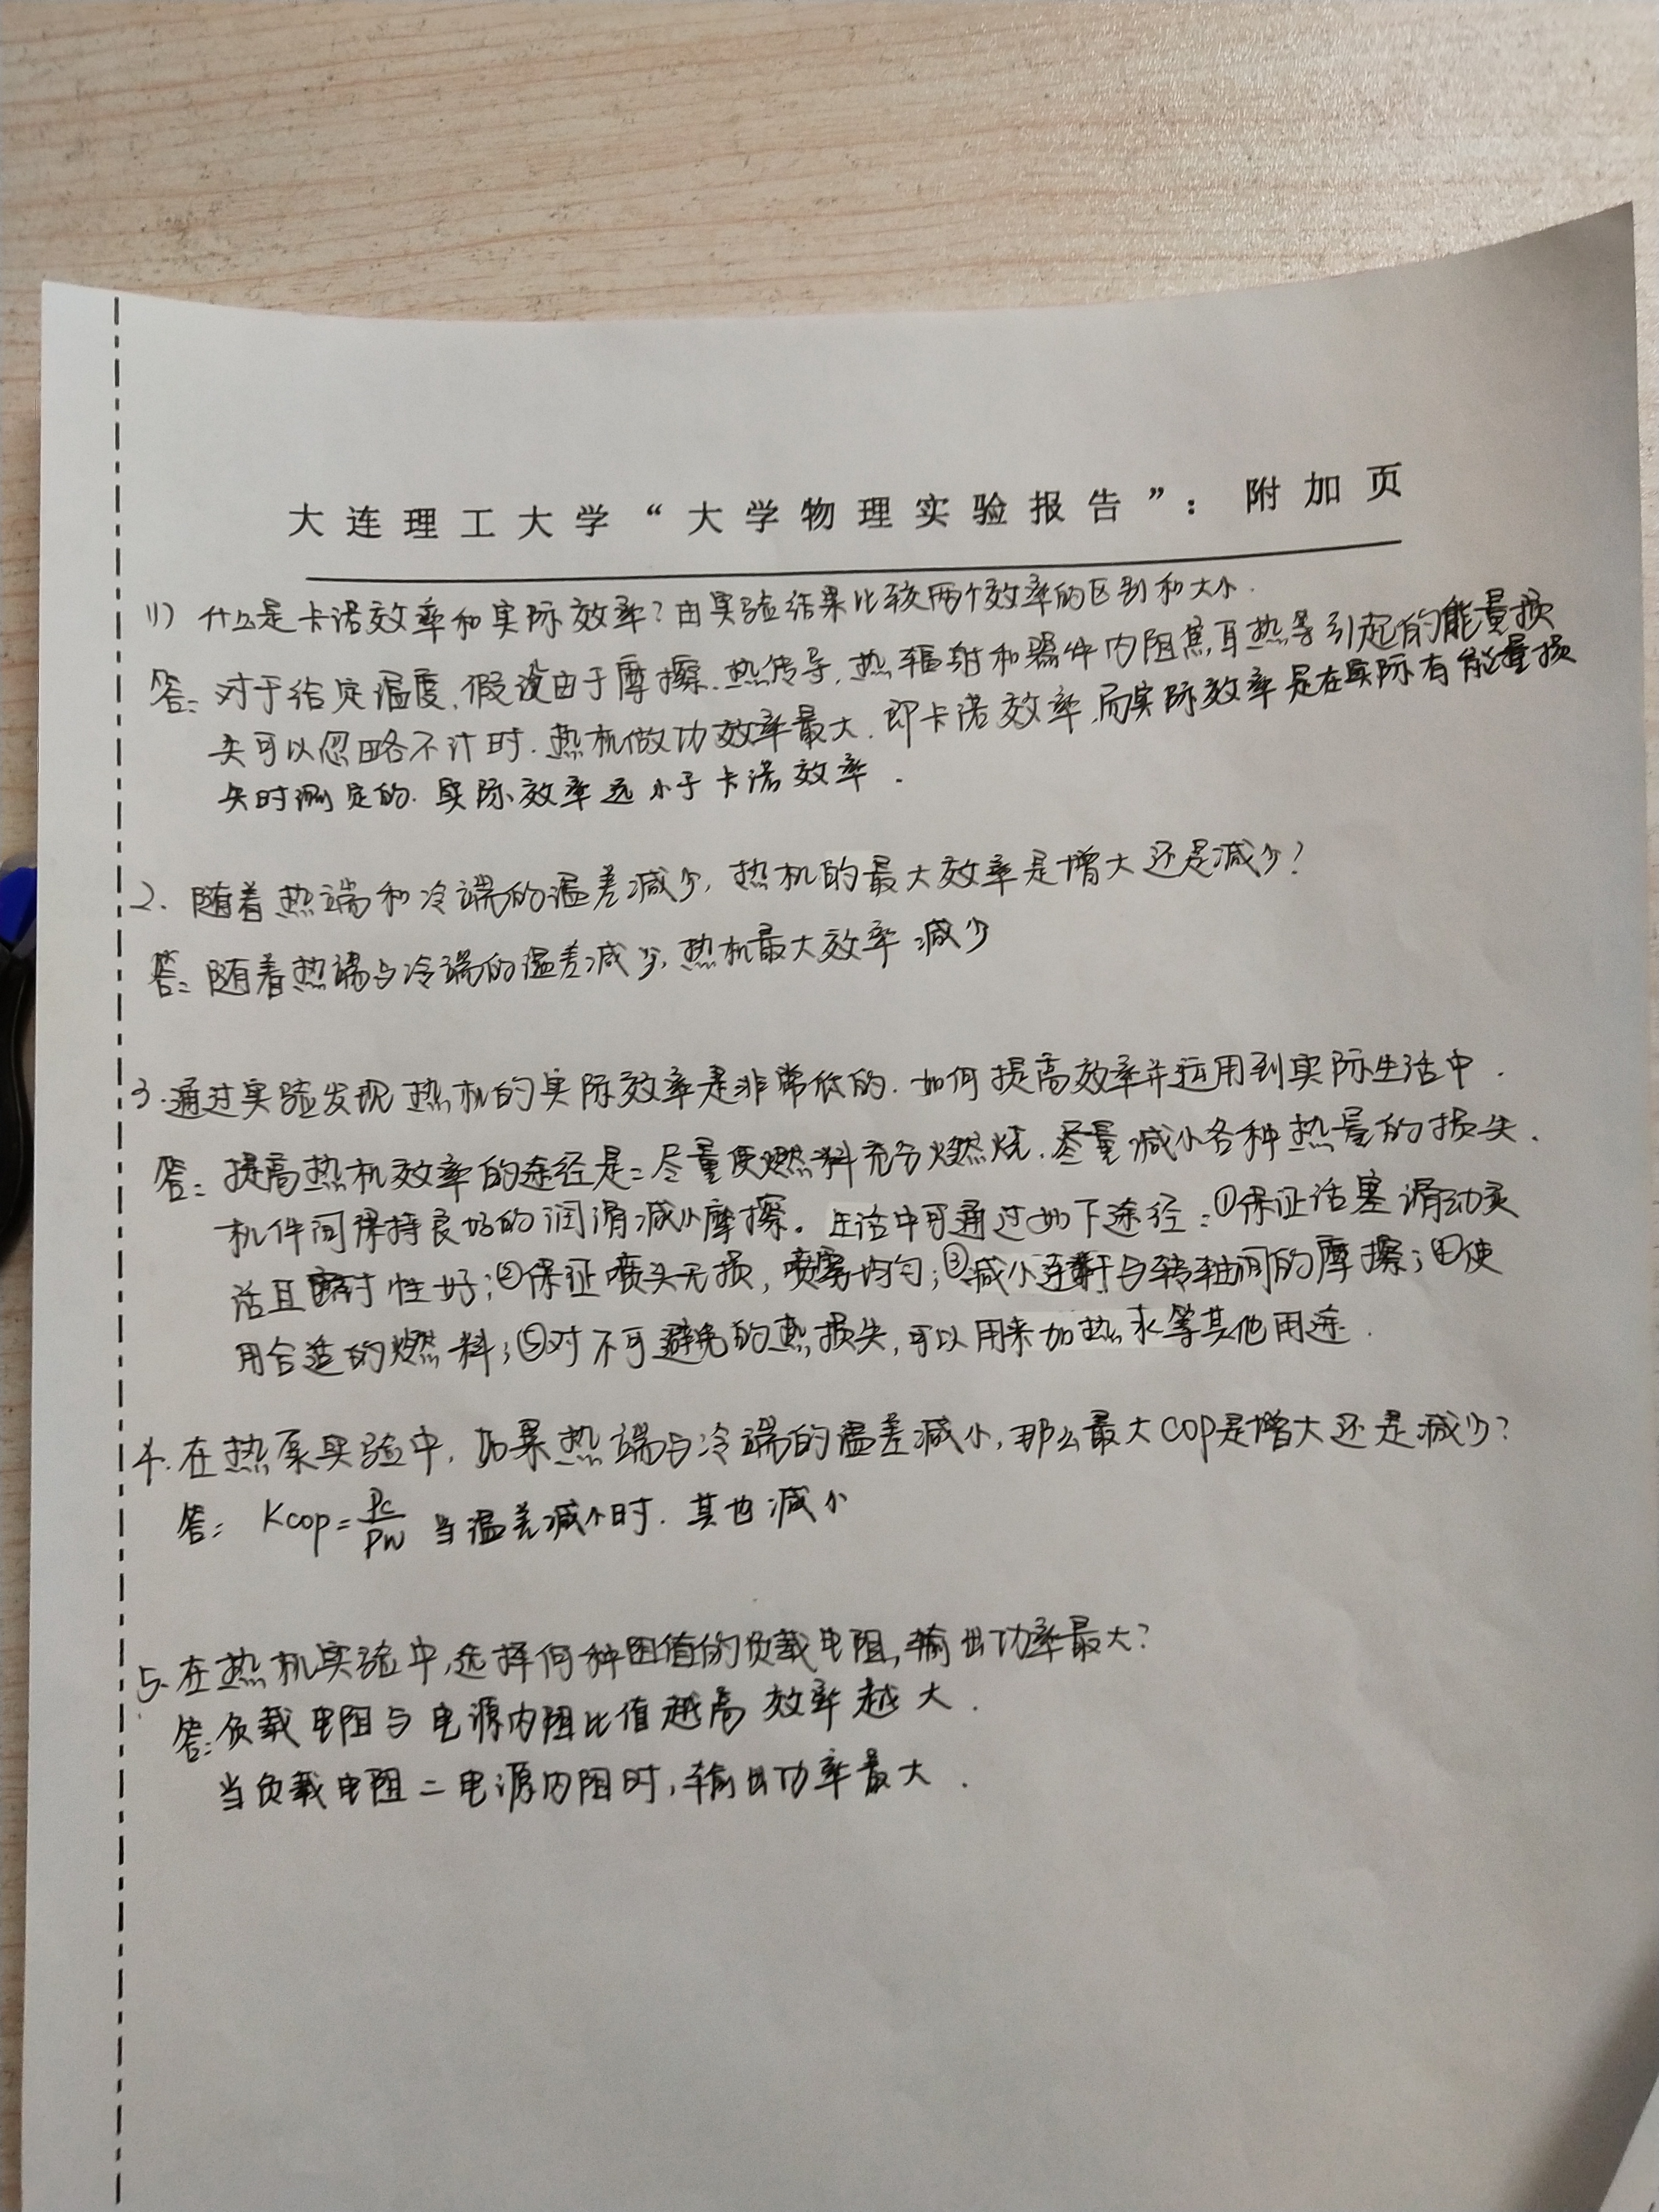 大连理工大学“大学物理实验报告”：附加页
(1) 什么是卡诺效率和实际效率?由实验结果比较两个效率的区别和大小.
答:对于给定温度,假设由于摩擦.热传导,热辐射和器件内阻焦耳热等引起的能量损
失可以忽略不计时.热机做功效率最大.即卡诺效率,而实际效率是在实际有能量损
失时测定的.实际效率远小于卡诺效率.
2.随着热端和冷端的温差减少,热机的最大效率是增大还是减少?
答:随着热端与冷端的温差减少,热机最大效率减少
3.通过实验发现热机的实际效率是非常低的.如何提高效率并运用到实际生活中.
答:提高热机效率的途径是:尽量使燃料充分燃烧.尽量减小各种热量的损失.
机件间保持良好的润滑减小摩擦。生活中可通过如下途径:①保证活塞滑动灵
活且密封性好;②保证喷头无损,喷雾均匀;③减小连杆与转轴间的摩擦;④使
用合适的燃料;⑤对不可避免的热损失,可以用来加热水等其他用途.
4.在热泵实验中,如果热端与冷端的温差减小,那么最大COP是增大还是减少?
答: Kcop=Pc/Pw 当温差减小时.其也减小
5.在热机实验中,选择何种阻值的负载电阻,输出功率最大?
答:负载电阻与电源内阻比值越高效率越大.
当负载电阻=电源内阻时,输出功率最大.